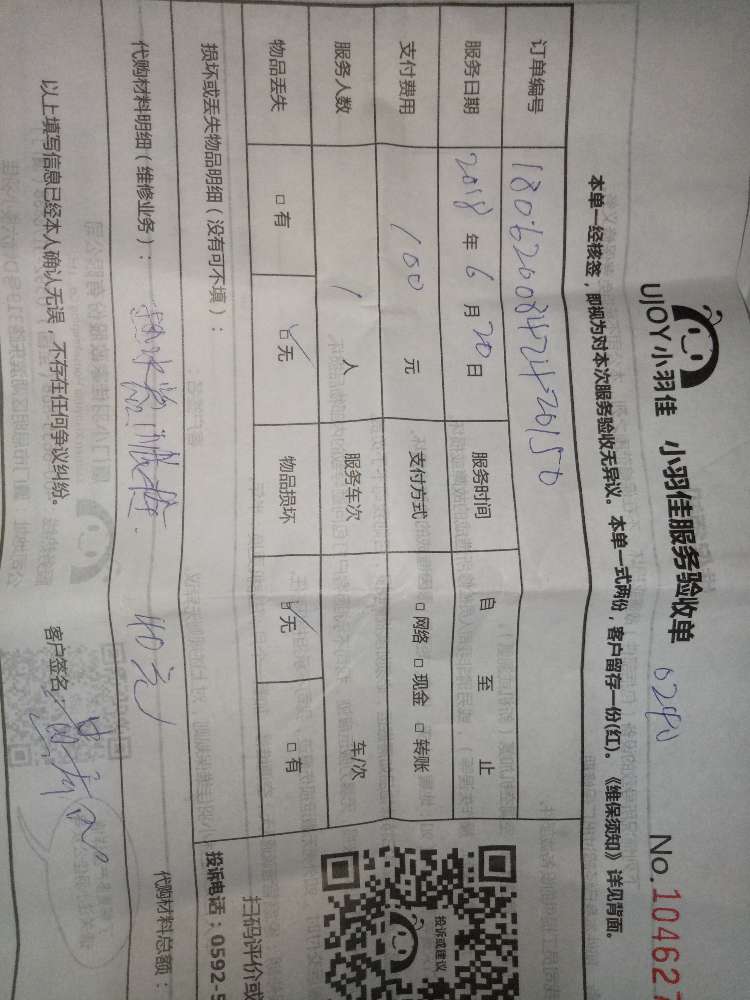 UJOY小羽佳 小羽佳服务验收单 No.10462
本单一经核签，即视为对本次服务验收无异议。本单一式两份，客户留存一份(红)。《维保须知》详见背面。
订单编号
服务日期 2018 年 6 月 20 日 服务时间 自 至 止
支付费用 100 元 支付方式 □ 网络 □ 现金 □ 转账
服务人数 1 人 服务车次 车/次
物品丢失 □ 有 □ 无 物品损坏 □ 无 □ 有
损坏或丢失物品明细（没有可不填）：
代购材料明细（维修业务）： 热水器 40元 代购材料总额：
以上填写信息已经本人确认无误，不存在任何争议纠纷。 客户签名：
投诉或建议
扫码评价或
投诉电话：0592-5